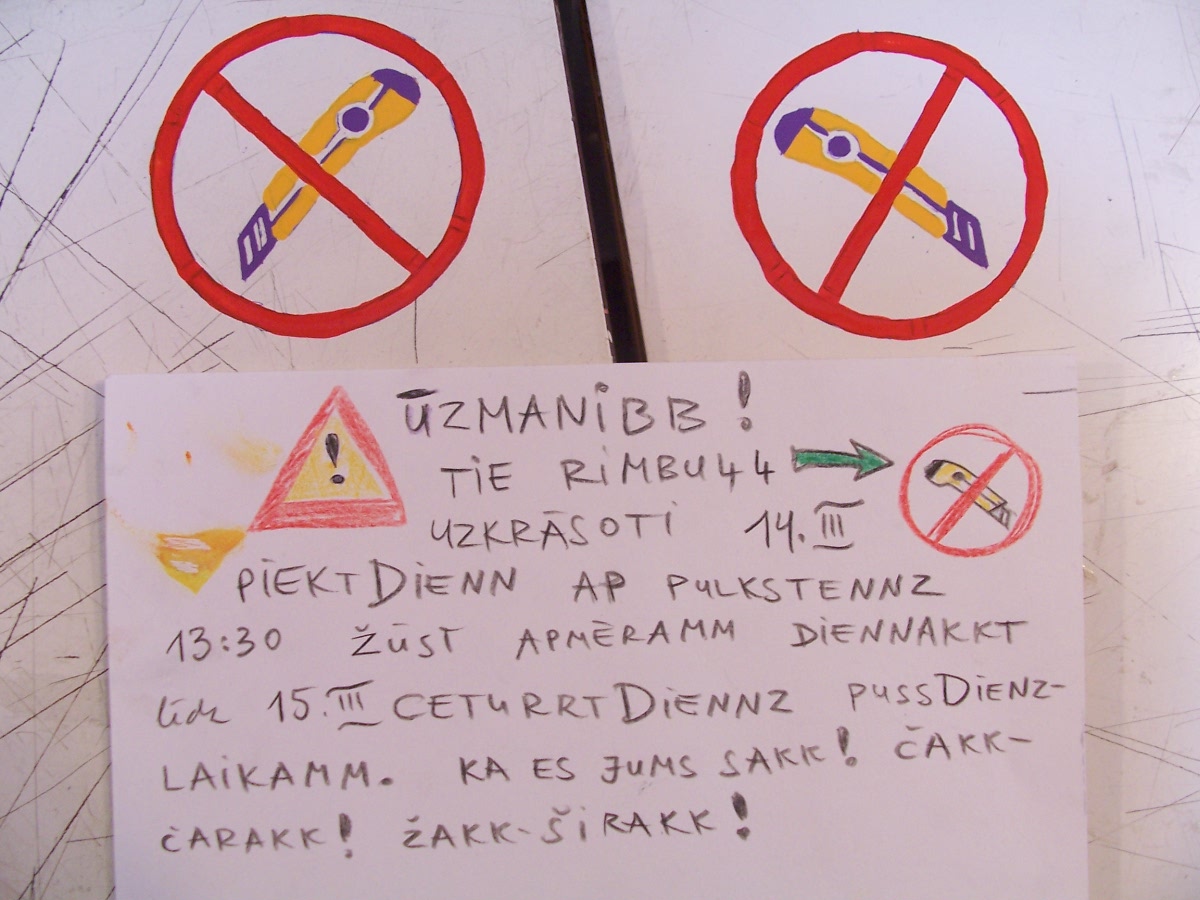 ŪZMANİBB!
TİE RİMBU44
UZKRĀSOTİ 14.III
PİEKTDİENN AP PULKSTENNZ
13:30 ŽŪST APMĒRAMM DİENNAKKT
līdz 15.III CETURRTDİENNZ PUSSDİENZ-
LAİKAMM. KA ES JUMS SAKK! ČAKK-
ČARAKK! ŽAKK-ŠİRAKK!